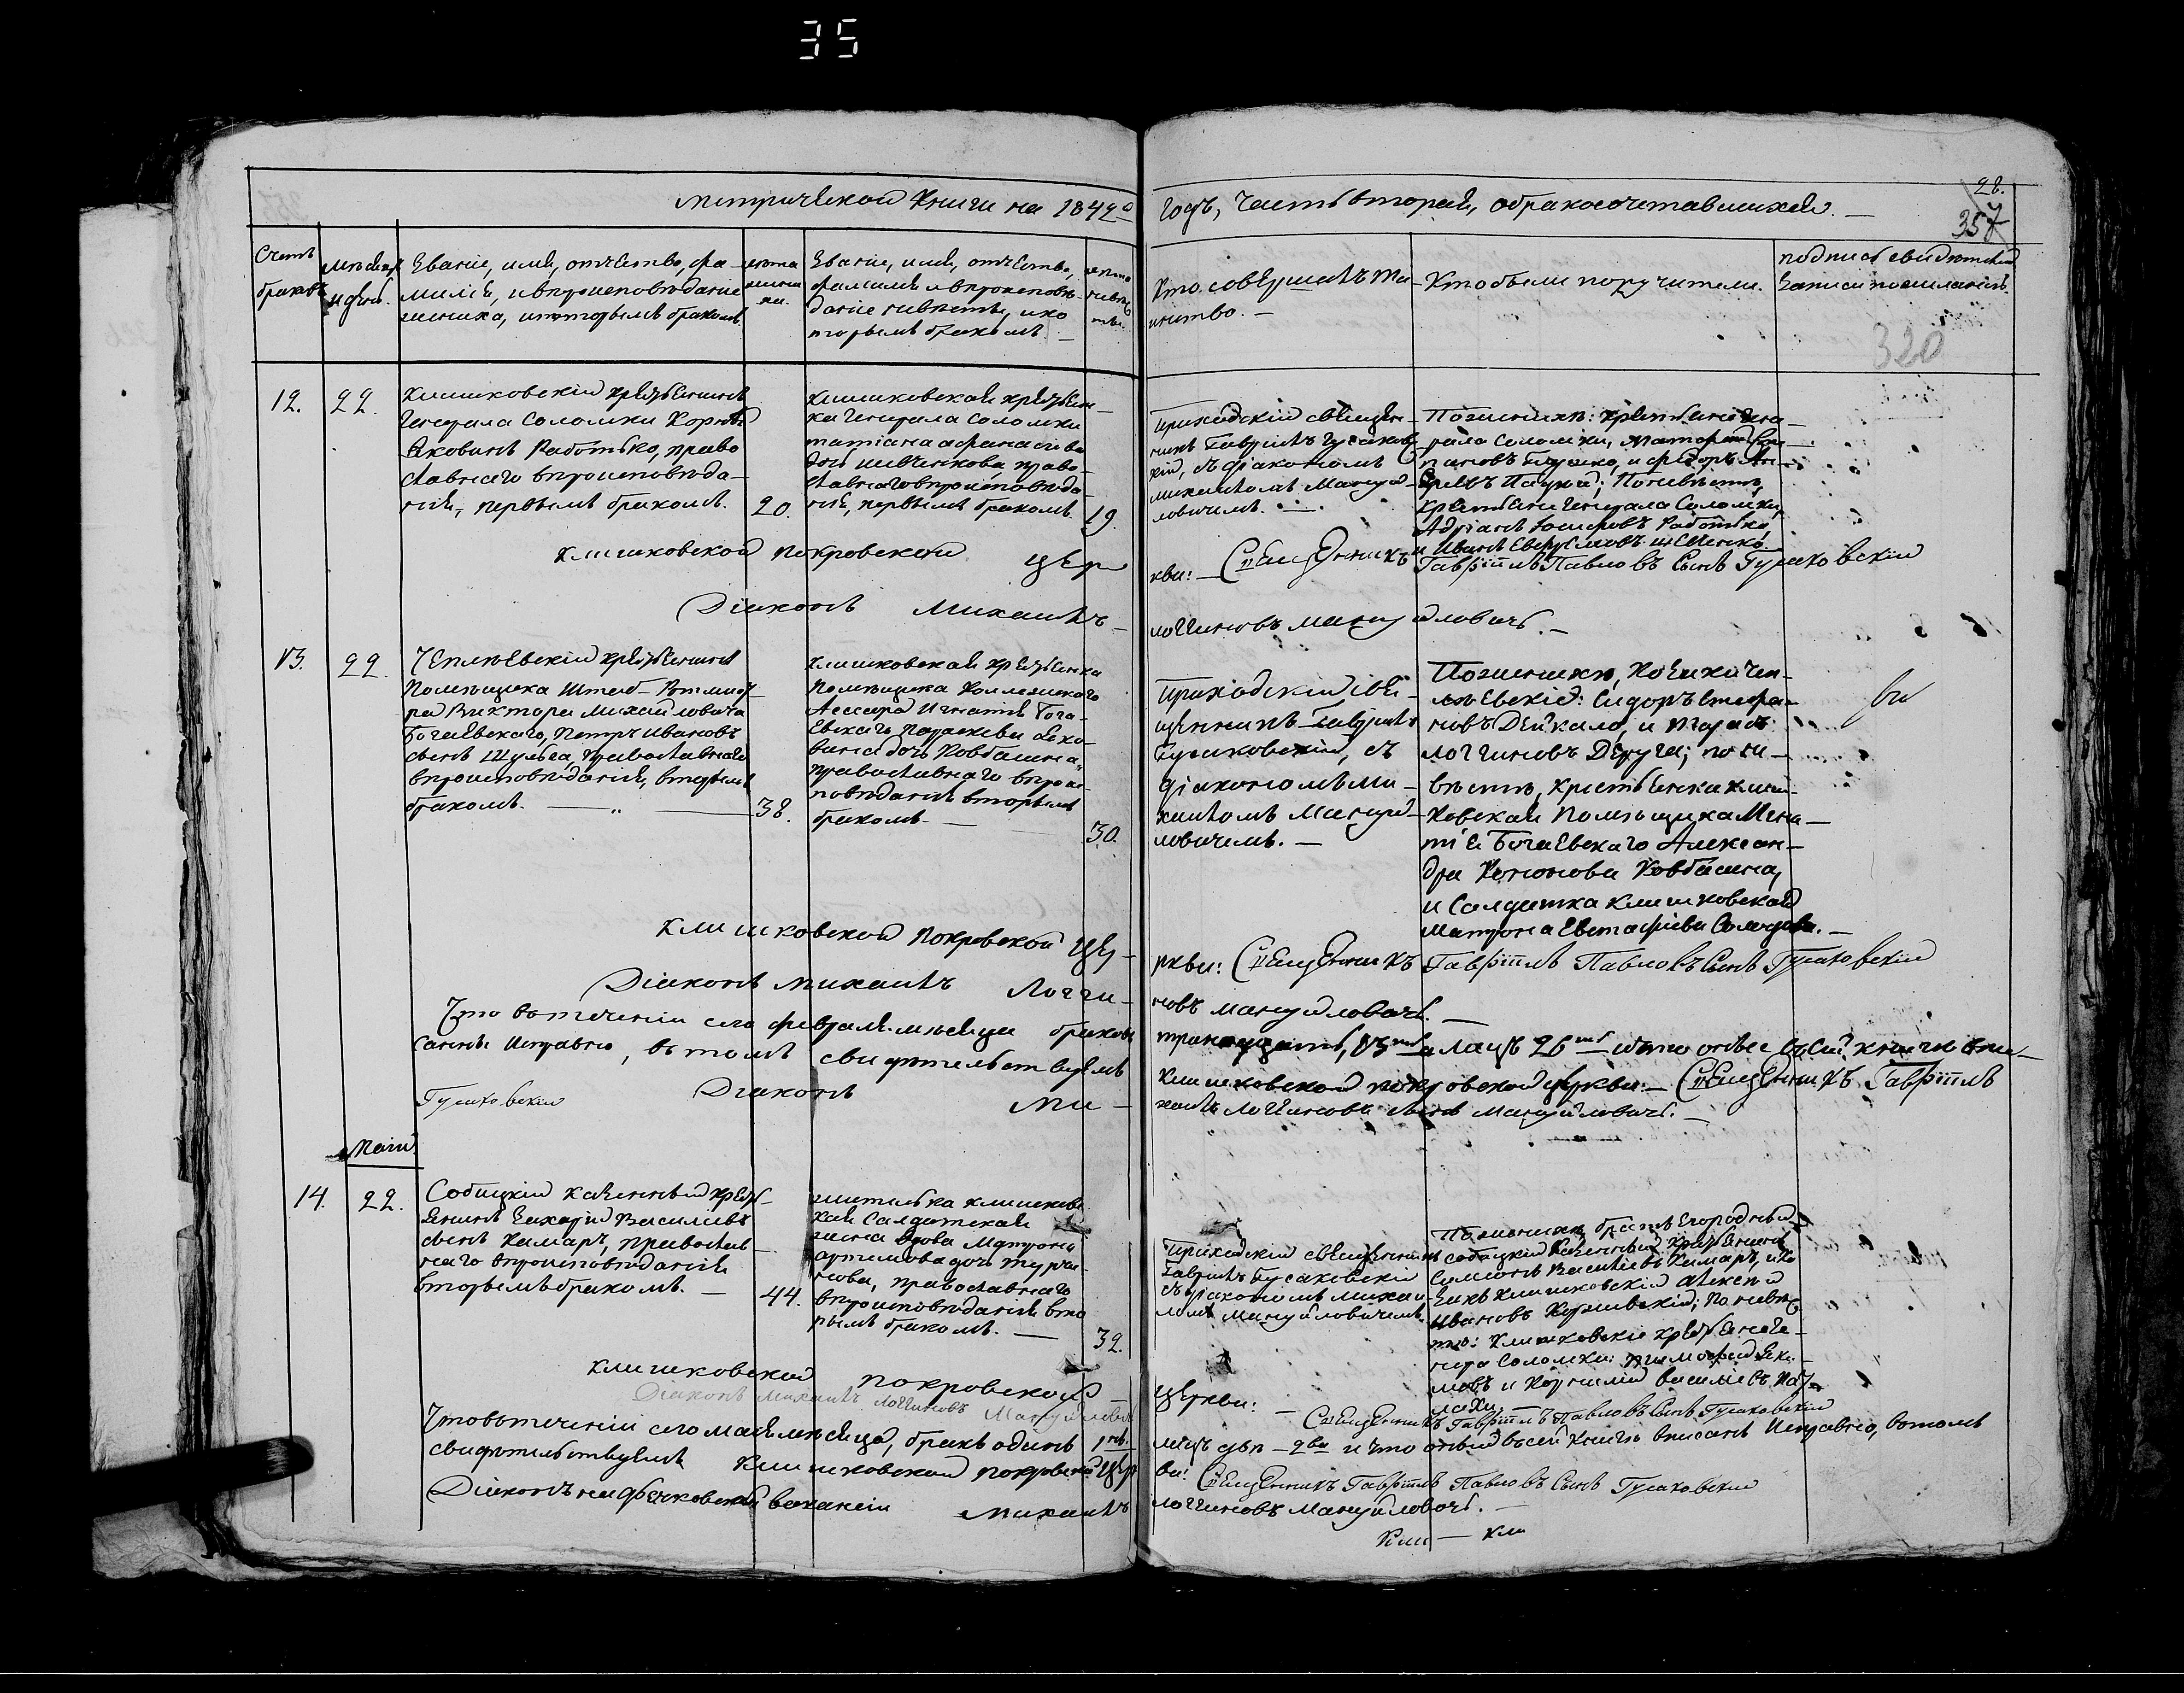 35
28.
357
320
Метрической Книги на 1842й
годъ, Часть вторая, о бракосочетавшихся.
Счетъ браковъ
Мѣсяцъ и день.
Званіе, имя, отчество, фа-
милія, и вѣроисповѣданіе
жениха, и которымъ бракомъ.
лѣта жениха.
Званіе, имя, отчество,
фамилія и вѣроисповѣ-
даніе невѣсты, и ко
торымъ бракомъ.
лѣта невѣсты.
Кто совершалъ Та-
инство.
Кто были поручители.
подпись свидѣтелей
записи по желанію.
12.
22.
Клишковскій крестьянинъ
Генерала Соломки Корнѣй
Яковинъ Работько, право
славнаго вѣроисповѣда-
нія, первымъ бракомъ.
20.
Клишковская крестьян-
ка Генерала Соломки
татіана Афанасіева
дочь Шевченкова, право-
славнаго вѣроисповѣда-
нія, первымъ бракомъ.
19.
Приходскій священ-
никъ Гавріилъ Гусаковс-
кій, съ діакономъ
михаиломъ Мануй-
ловичемъ.
По женихѣ: крестьяне Гене-
рала Соломки,
и Федоръ Ан-
дреевъ
По невѣстѣ,
крестьяне Генерала Соломки,
Адріанъ Іосифовъ Работько,
и Иванъ Шевченко
Клишковской Покровской Цер
кви: Священникъ Гавріилъ Павловъ Сынъ Гусаковскій
Діаконъ Михаилъ
Логгиновъ Мануйловичъ.
13.
22.
Чеплѣевскій крестьянинъ
Помѣщика Штаб-Ротмист-
ра Виктора Михайловича
Богаевскаго, Петръ Ивановъ
сынъ Шульга, православнаго
вѣроисповѣданія, вторымъ
бракомъ.
38.
Клишковская крестьянка
Помѣщика Коллежскаго
Ассесора Игнатія Бога-
евскаго, Параскева Яко-
вина дочь Ковбашина,
православнаго вѣрои-
повѣданія вторымъ
бракомъ.
30.
Приходскій свя-
щенникъ Гавріилъ
Гусаковскій, съ
діакономъ ми-
хаиломъ Мануй-
ловичемъ.
По женихѣ, Козаки Чеп-
лѣевскіе: Сидоръ Стефа-
новъ Дейкало, и Тарасъ
Логгиновъ Деруга; по не-
вѣстѣ, крестьянка Клиш-
ковская Помѣщика Игна-
тія Богаевскаго Алексан-
дра Кононова Ковбашина,
и Солдатка Клишковская
Матрона Евстафіева
Клишковской Покровской Це-
ркви: Священникъ Гавріилъ Павловъ Сынъ Гусаковскій
Діаконъ михаилъ Логги-
новъ Мануйловичъ.
Что въ теченіи сего февраля мѣсяца браковъ
тринадцать, 13ть а лицъ 26ть и что оные въ сей книги впи-
санны Исправно, въ томъ свидѣтельствуемъ
Клишковской покровской церкви: Священникъ Гавріилъ
Гусаковскій Діаконъ Ми-
хаилъ Логгиновъ сынъ Мануйловичъ.
Маій
14.
22.
Собицкій казенный крест-
янинъ Захарій Василіевъ
сынъ Комаръ, православ-
наго вѣроисповѣданія
вторымъ бракомъ.
44.
жителька Клишковс-
кая Солдатская
жена вдова Матрона
Артемова дочь
православнаго
вѣроисповѣданія вто
рымъ бракомъ.
32.
Приходскій священникъ
Гавріилъ Гусаковскій
съ діакономъ михаи
ломъ Мануйловичемъ.
По женихѣ, братъ Его родный
собицкій казенный крестьянинъ
Симеонъ Василіевъ Комаръ, и Ко
закъ Клишковскій Алексѣй
Ивановъ по невѣс
тѣ: Клишковскіе крестьяне Ге-
нера Соломки: тимофей Яки-
мовъ и Корнилій Василіевъ
Клишковской Покровской
Церкви: Священникъ Гавріилъ Павловъ Сынъ Гусаковскій
Діаконъ Михаилъ Логгиновъ Мануйловичъ
Что въ теченіи сего маія мѣсяца, бракъ одинъ 1нъ.
лицъ два - 2ва и что оный въ сей книгѣ вписанъ Исправно, въ томъ
свидѣтельствуемъ Клишковской Покровской Цер
ви: Священникъ Гавріилъ Павловъ Сынъ Гусаковскій
Діаконъ на дьячковской ваканіи Михаилъ
Логгиновъ Мануйловичъ.
Кли - Кли